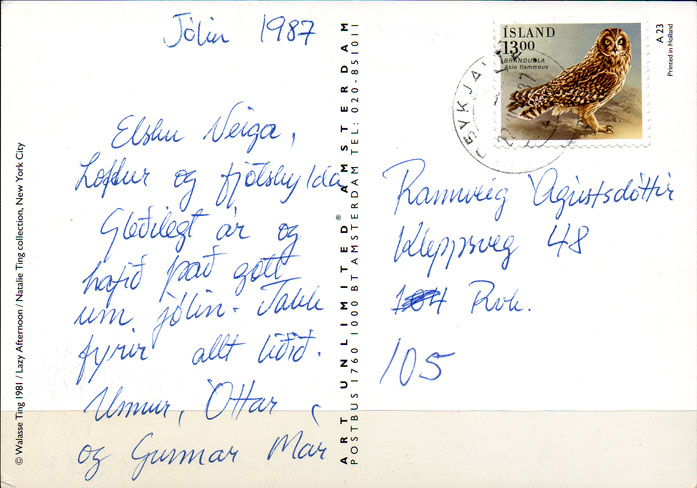 Jólin 1987
Elsku Veiga,
Loftur og fjölskylda
Gleðilegt ár og
hafið það gott
um jólin. Takk
fyrir allt liðið.
Unnur, Óttar
og Gunnar Már
© Walasse Ting 1981 / Lazy Afternoon / Natalie Ting collection, New York City
ART UNLIMITED® AMSTERDAM
POSTBUS 1760 1000 BT AMSTERDAM TEL: 020-851011
ÍSLAND
13.00
BRANDUGLA
Asio flammeus
A 23
Printed in Holland
Rannveig Ágústsdóttir
Kleppsveg 48
104 Rvk.
105